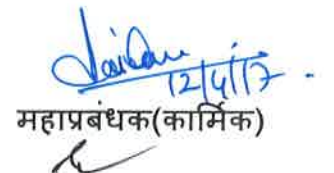 12/4/17
महाप्रबंधक(कार्मिक)